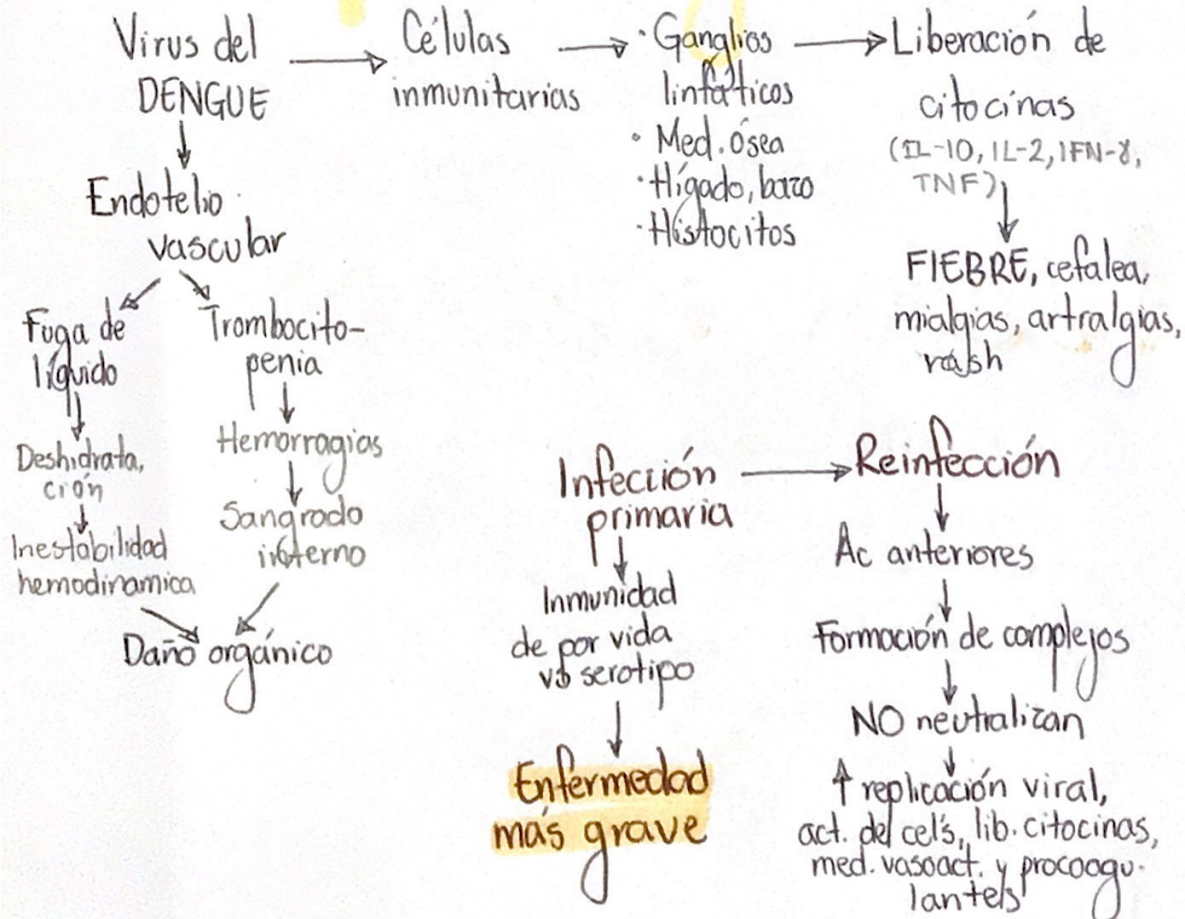 Virus del
DENGUE
Células
inmunitarias
· Ganglios
linfáticos
· Med. Ósea
· Hígado, bazo
· Histocitos
Liberación de
citocinas
(IL-10, IL-2, IFN-γ,
TNF)
FIEBRE, cefalea,
mialgias, artralgias,
rash
Endotelio
vascular
Fuga de
líquido
Deshidrata,
ción
Inestabilidad
hemodinamica
Trombocito-
penia
Hemorragias
Sangrado
interno
Daño orgánico
Infección
primaria
Inmunidad
de por vida
vs serotipo
Enfermedad
más grave
Reinfección
Ac anteriores
Formación de complejos
NO neutralizan
↑ replicación viral,
act. del cel's, lib. citocinas,
med. vasoact. y procoagu-
lantels